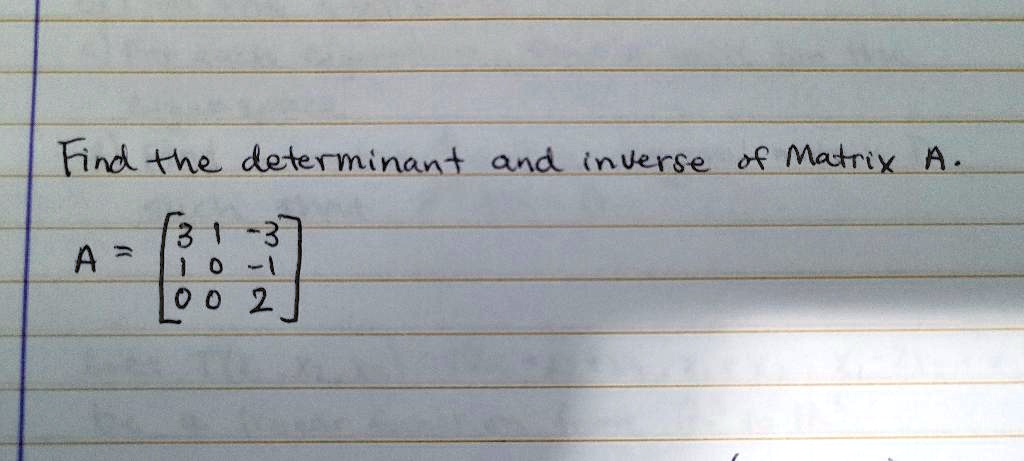 Find the determinant and inverse of Matrix A.
A = [3 1 -3
1 0 -1
0 0 2]